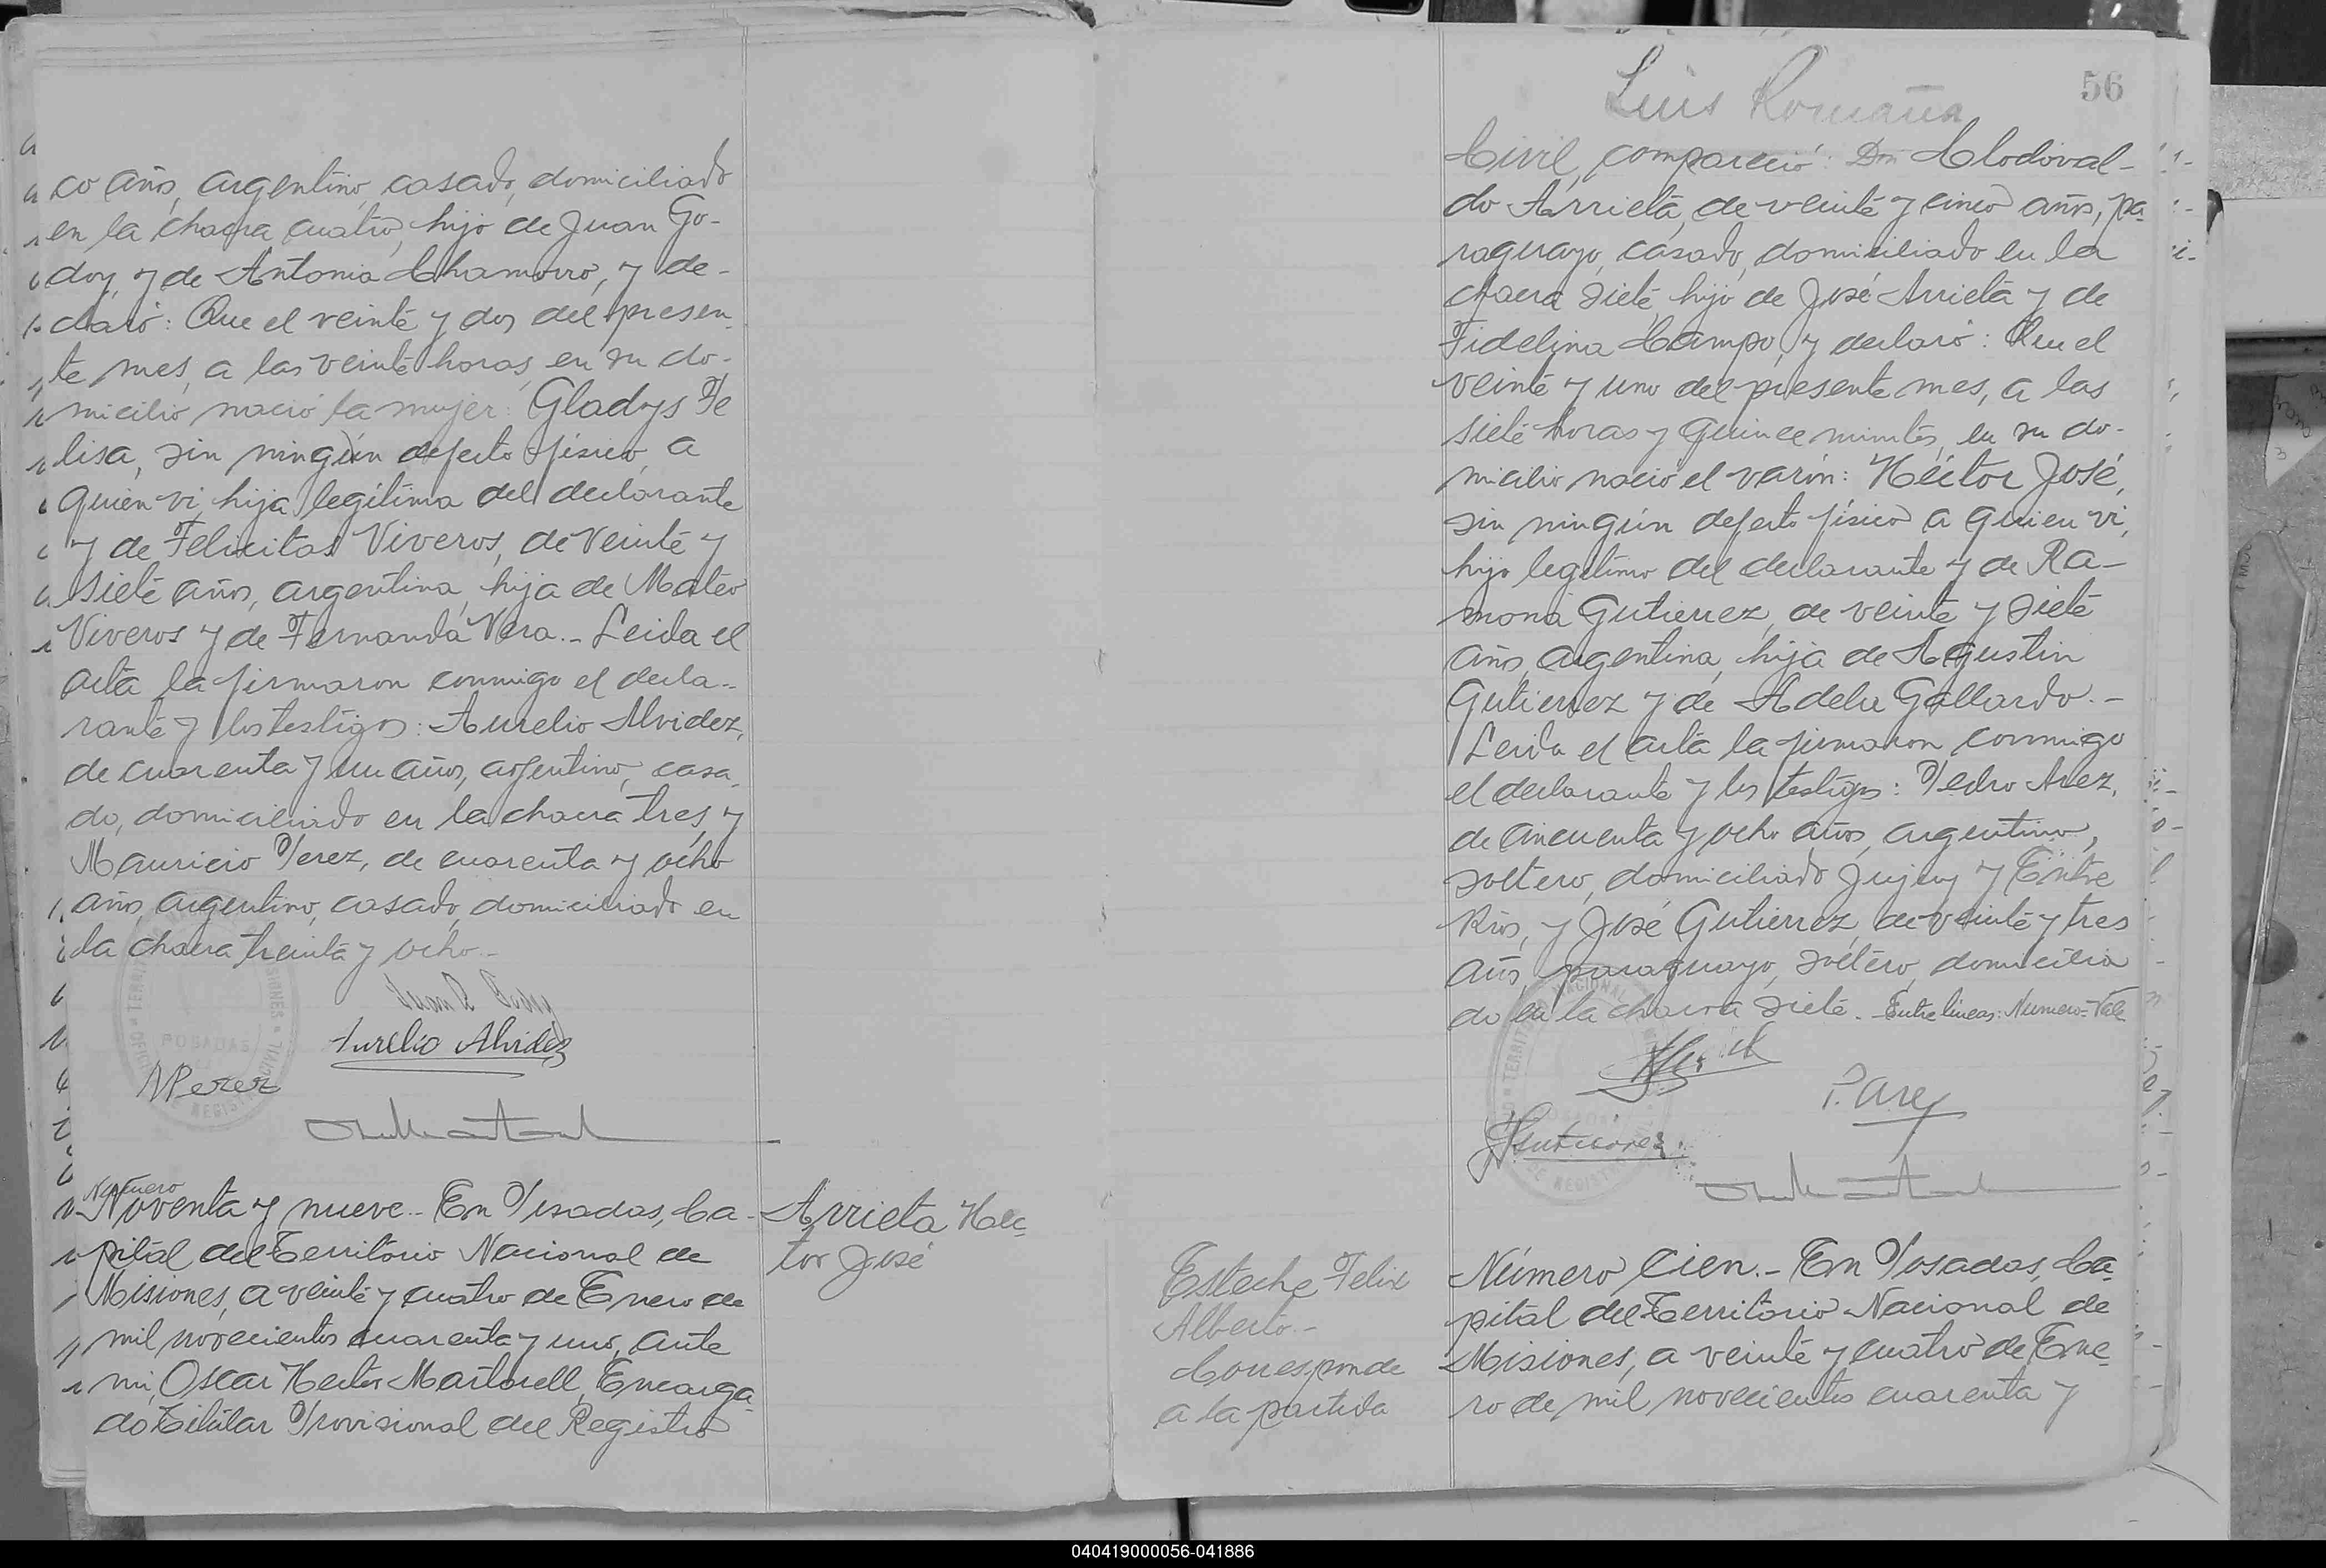 co años, argentino, casado, domiciliado
en la chacra cuatro, hijo de Juan Go-
doy, y de Antonia Chamorro, y de-
claró: Que el veinte y dos del presen-
te mes, a las veinte horas, en su do-
micilio nació la mujer: Gladys Fe
lisa, sin ningún defecto físico, a
quien vi, hija legítima del declarante
y de Felicitas Viveros, de veinte y
siete años, argentina, hija de Mateo
Viveros y de Fernanda Vera.- Leida el
acta la firmaron conmigo el decla-
rante y los testigos: Aurelio Alvidez,
de cuarenta y un años, argentino, casa-
do, domiciliado en la chacra tres, y
Mauricio Perez, de cuarenta y ocho
años, argentino, casado, domiciliado en
la chacra treinta y ocho.-
Aurelio Alvidez
MPerez
POSADAS
Número
Noventa y nueve.- En Posadas, Ca-
pital del Territorio Nacional de
Misiones, a veinte y cuatro de Enero de
mil novecientos cuarenta y uno, ante
mi, Oscar Hector Martorell, Encarga-
do Titular Provisional del Registro
Arrieta Hec-
tor José
Luis Romaña
56
Civil, compareció: Don Clodoval-
do Arrieta, de veinte y cinco años, pa-
raguayo, casado, domiciliado en la
chacra siete, hijo de José Arrieta y de
Fidelina Campo, y declaró: Que el
veinte y uno del presente mes, a las
siete horas y quince minutos, en su do-
micilio nació el varón: Héctor José,
sin ningún defecto físico a quien vi,
hijo legítimo del declarante y de Ra-
mona Gutierrez, de veinte y siete
años, argentina, hija de Agustin
Gutierrez y de Adela Gallardo.-
Leida el acta la firmaron conmigo
el declarante y los testigos: Pedro Arez,
de cincuenta y ocho años, argentino,
soltero, domiciliado Jujuy y Entre
Rios, y José Gutierrez, de veinte y tres
años, paraguayo, soltero, domicilia
do en la chacra siete.- Entre lineas: Numero-Vale
P. Arez
JGutierrez
Esteche Felix
Alberto.-
Corresponde
a la partida
Número Cien.- En Posadas, Ca-
pital del Territorio Nacional de
Misiones, a veinte y cuatro de Ene-
ro de mil novecientos cuarenta y
040419000056-041886